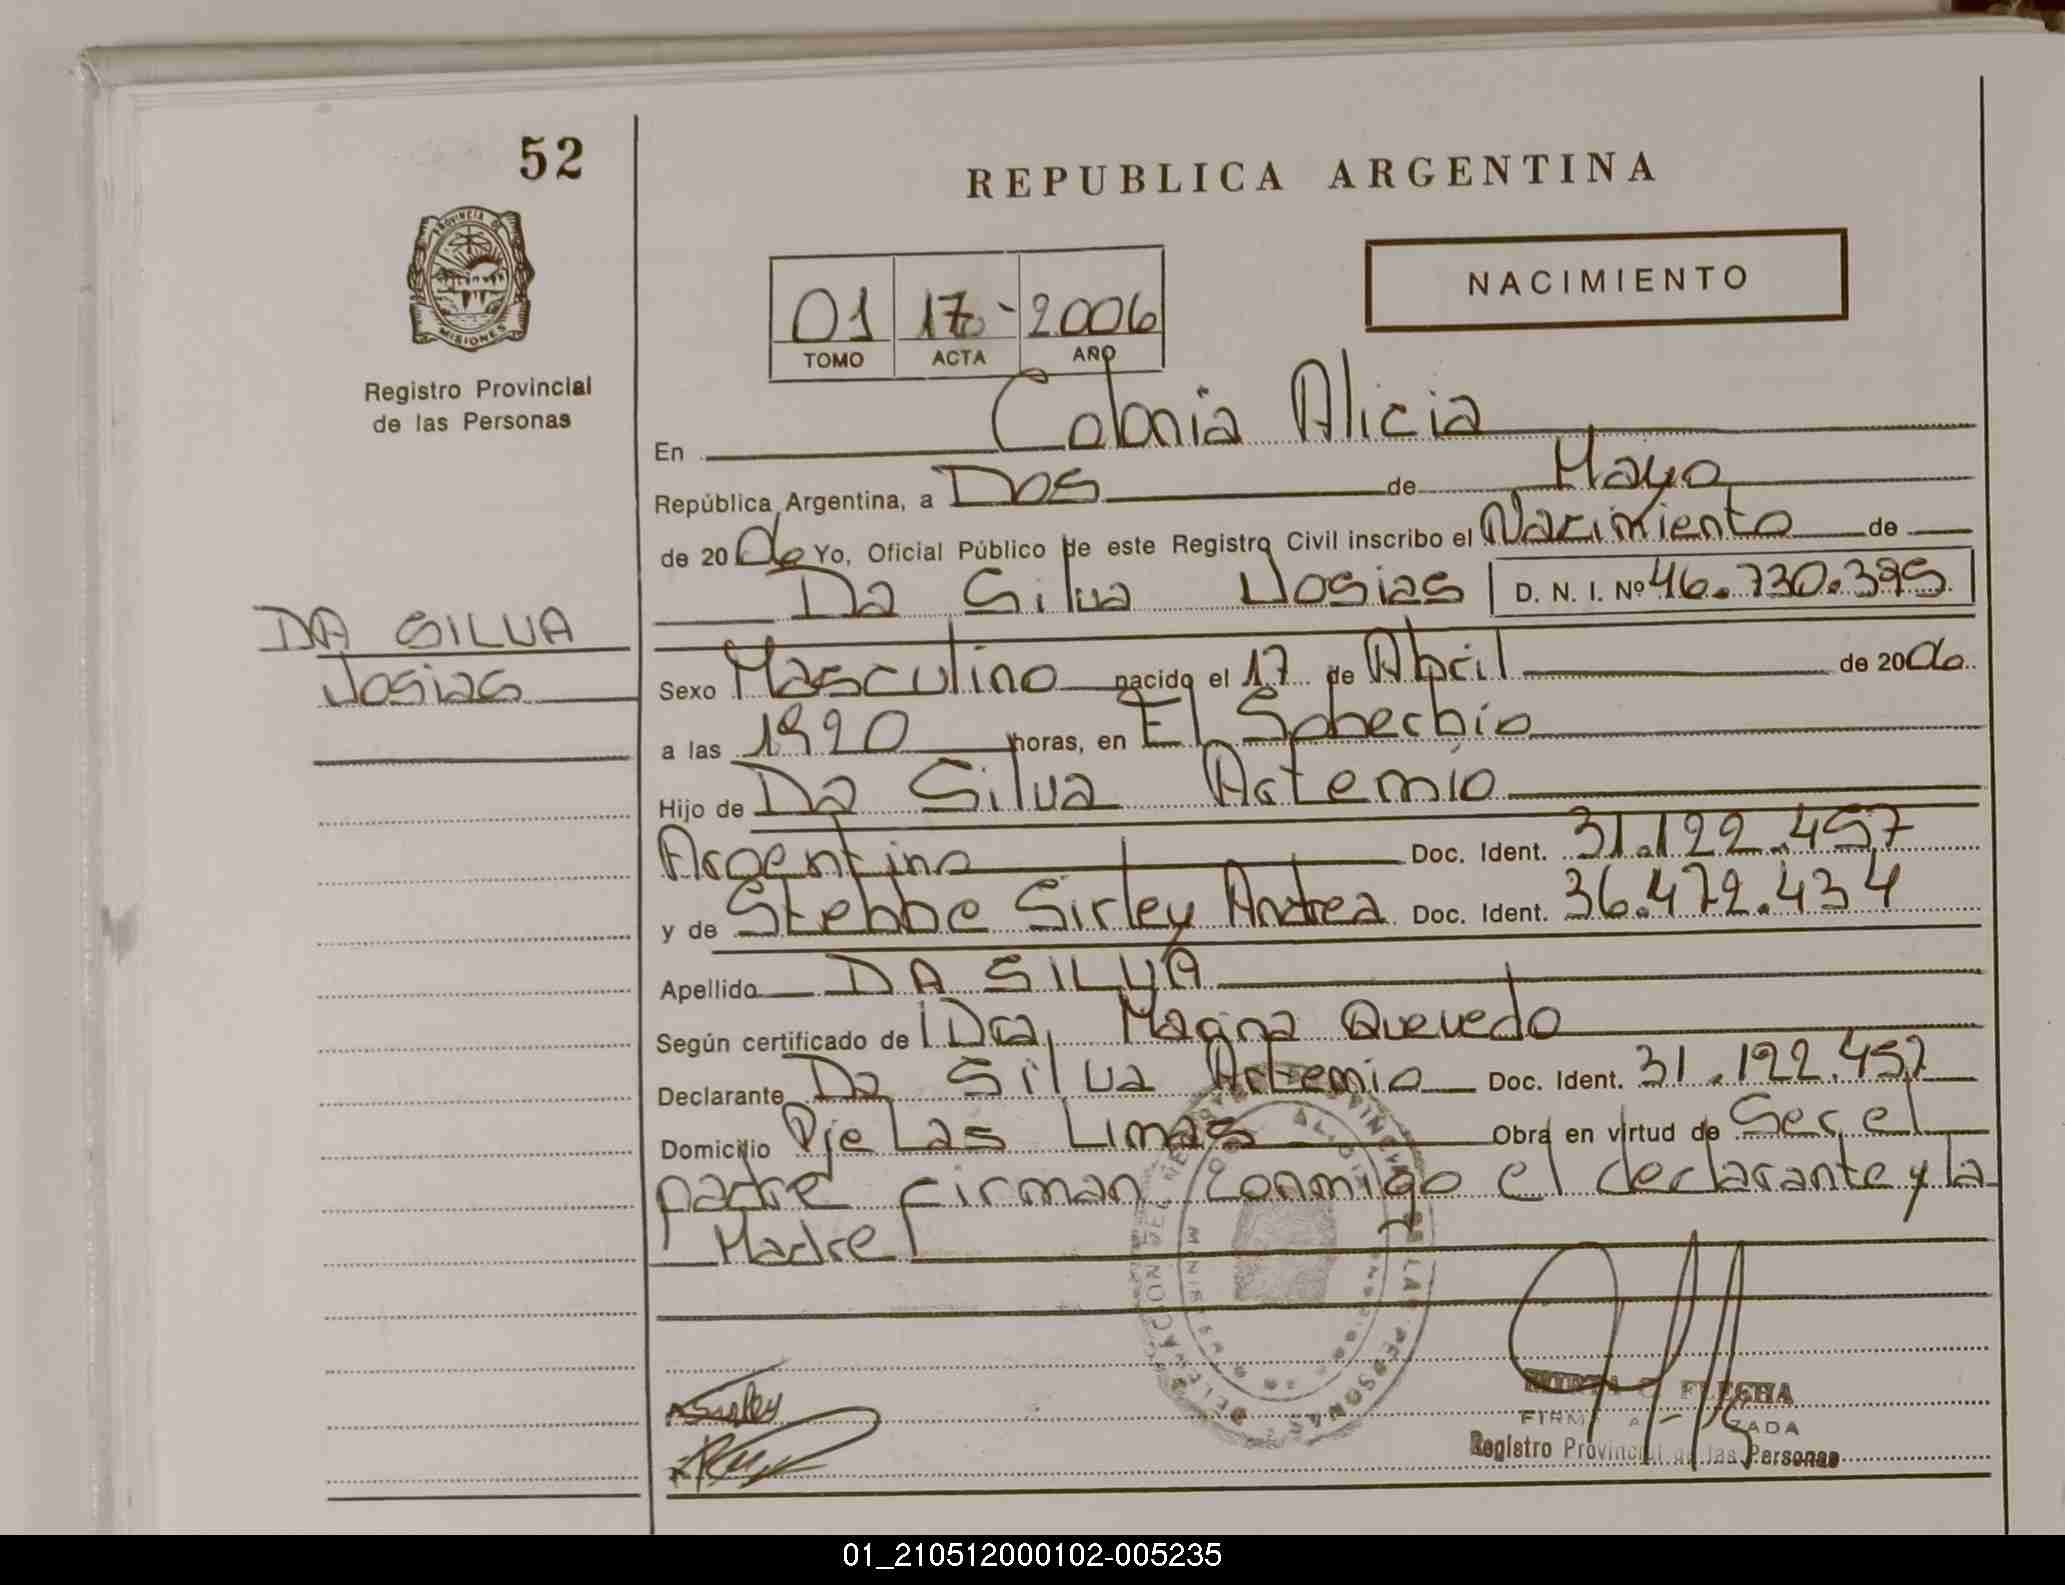 52
REPUBLICA ARGENTINA
PROVINCIA DE
MISIONES
Registro Provincial
de las Personas
NACIMIENTO
01 17- 2006
TOMO ACTA AÑO
En Colonia Alicia
República Argentina, a Dos de Mayo
de 2006 Yo, Oficial Público de este Registro Civil inscribo el Nacimiento de
Da Silva Josias D. N. I. Nº 46.730.395
DA SILVA
Josias
Sexo Masculino nacido el 17 de Abril de 2006
a las 1920 horas, en El Soberbio
Hijo de Da Silva Artemio
Argentino Doc. Ident. 31.122.457
y de Stebbe Sirley Andrea Doc. Ident. 36.472.434
Apellido DA SILVA
Según certificado de Dra. Magna Quevedo
Declarante Da Silva Artemio Doc. Ident. 31.122.457
Domicilio Pje Las Limas Obra en virtud de Ser el
padre firman conmigo el declarante y la
Madre
Sirley
FLECHA
Registro Provincial de las Personas
01_210512000102-005235